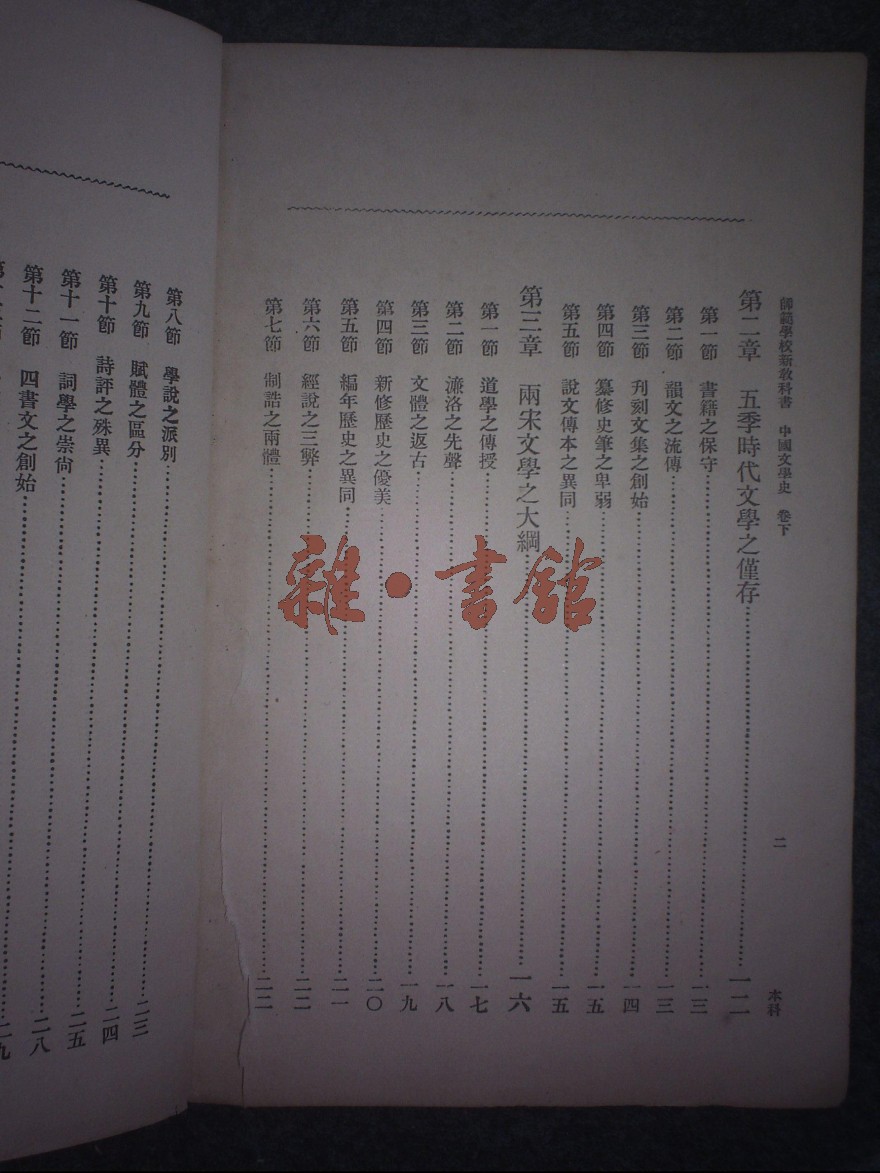 師範學校新教科書　中國文學史　卷下　二　本科
第二章　五季時代文學之僅存……一二
第一節　書籍之保守……一三
第二節　韻文之流傳……一三
第三節　刋刻文集之創始……一四
第四節　纂修史筆之卑弱……一五
第五節　說文傳本之異同……一五
第三章　兩宋文學之大綱……一六
第一節　道學之傳授……一七
第二節　濂洛之先聲……一八
第三節　文體之返古……一九
第四節　新修歷史之優美……二〇
第五節　編年歷史之異同……二一
第六節　經說之三弊……二二
第七節　制誥之兩體……二二
第八節　學說之派別……二三
第九節　賦體之區分……二四
第十節　詩評之殊異……二五
第十一節　詞學之崇尙……二八
第十二節　四書文之創始……二九
雜·書館